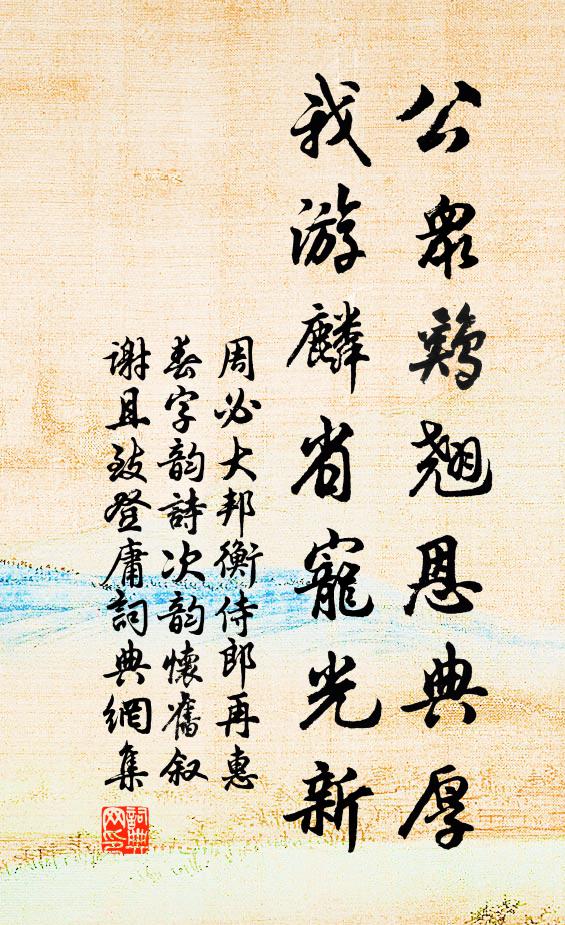 公衆鷄翘恩典厚
我游麟省寵光新
周必大邦衡侍郎再惠
春字韵詩次韵懷舊叙
謝且致登庸詞典網集
詞典
网印